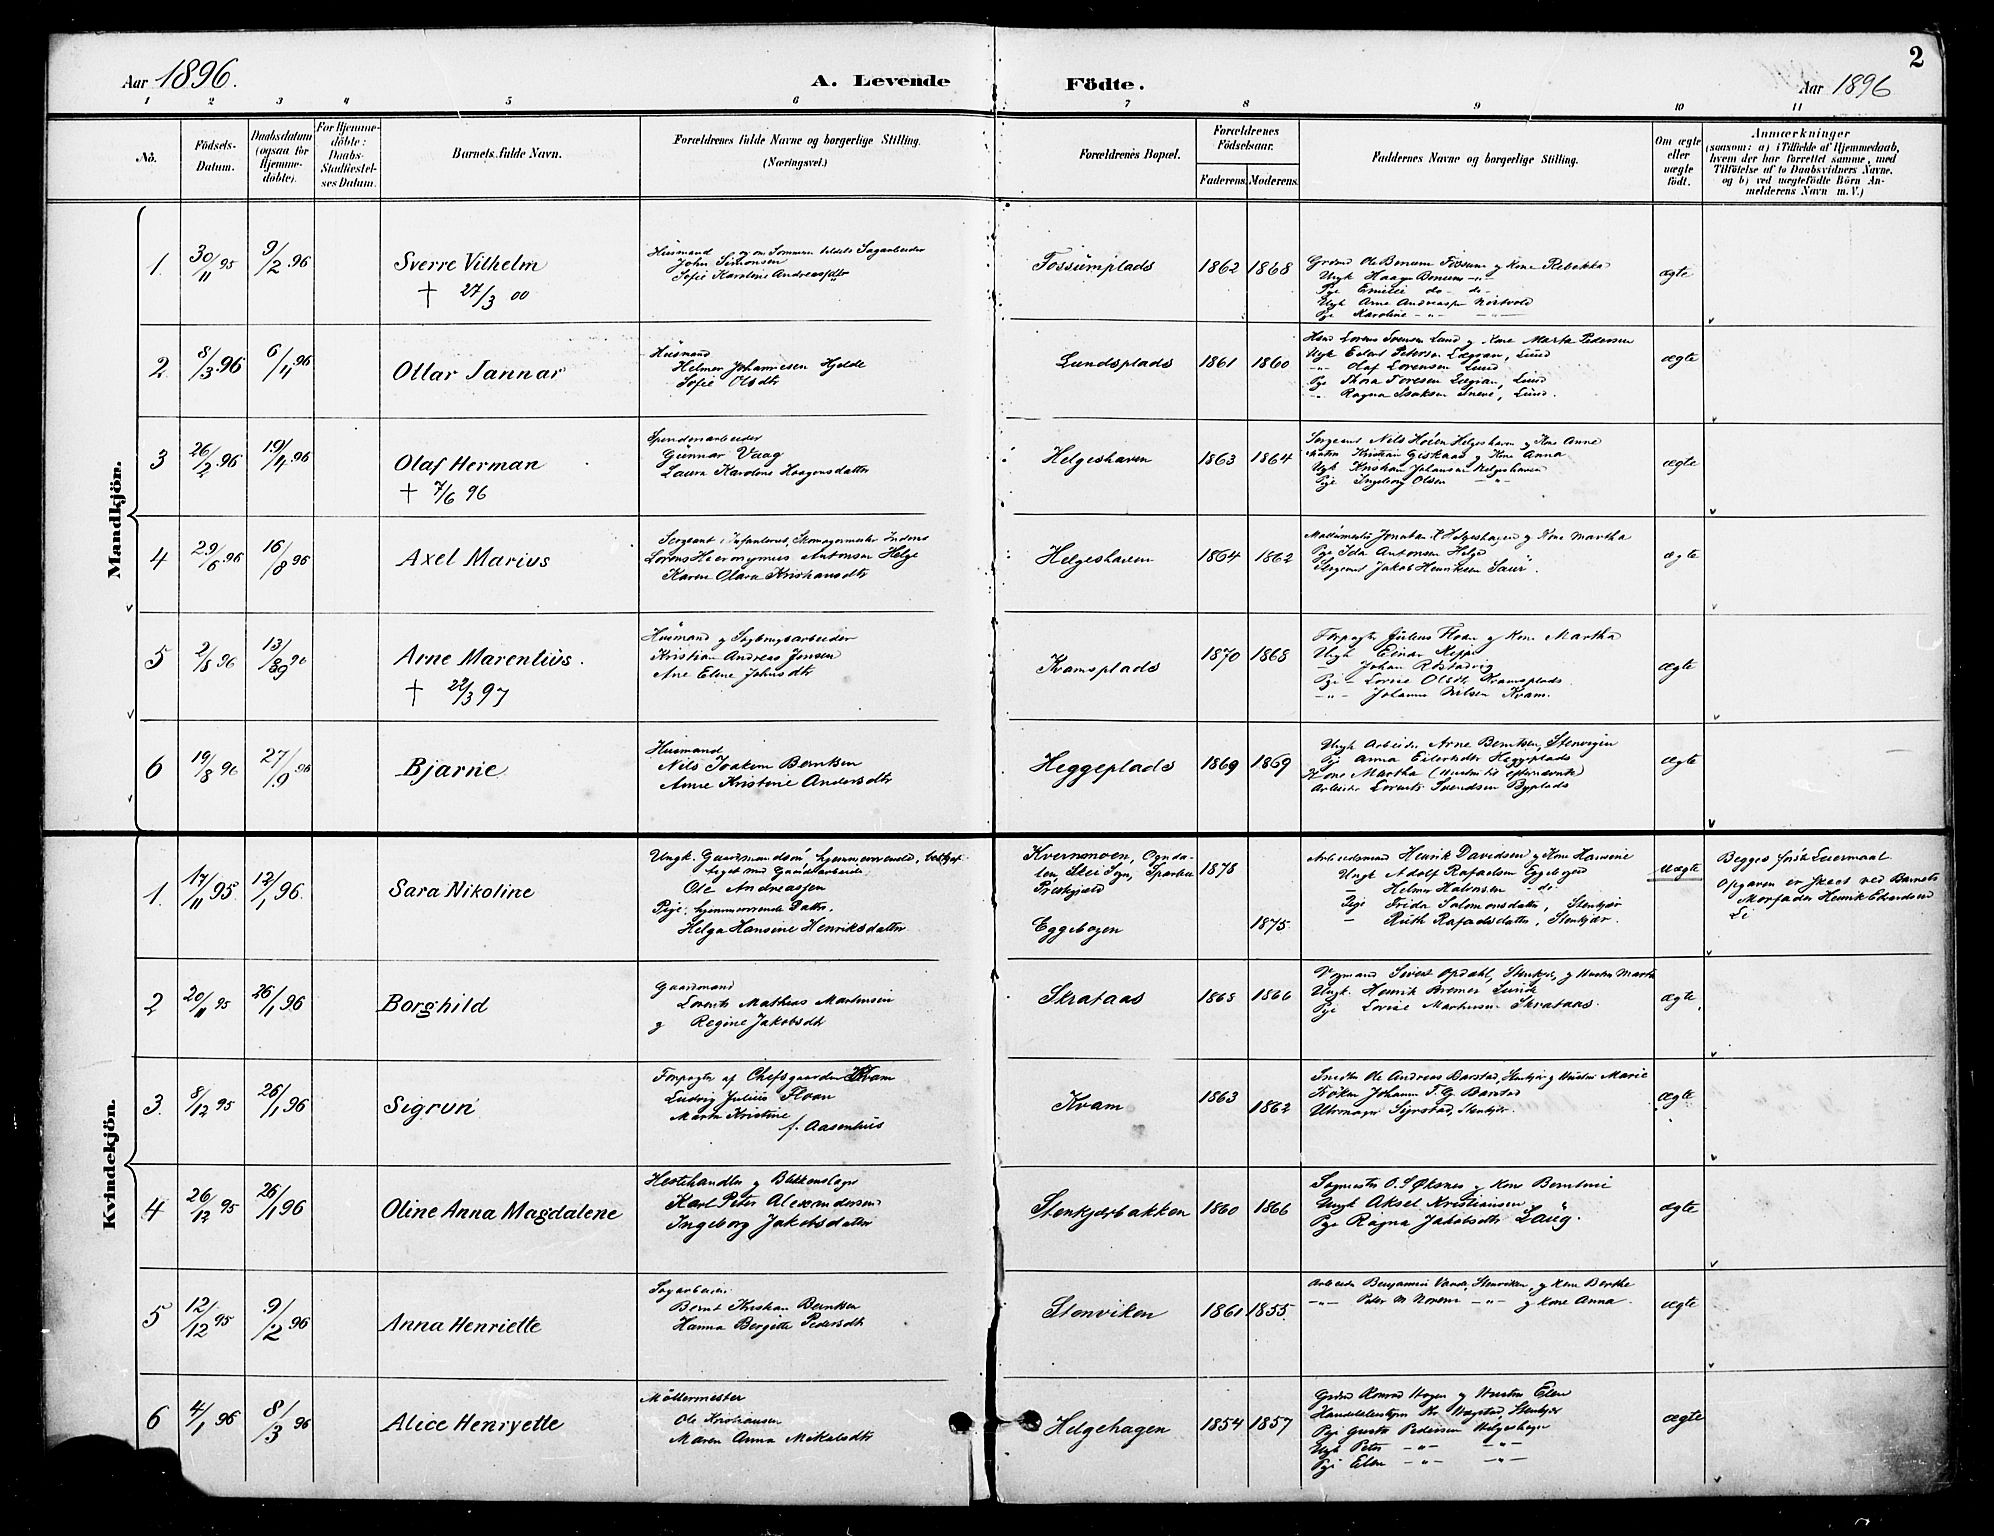 Aar 1896.
A. Levende
Födte.
Aar 1896
2
1 2 3 4 5 6 7 8 9 10 11
No.
Födsels-
Datum.
Daabsdatum
(ogsaa for
Hjemme-
döbte).
For Hjemme-
döbte:
Daabs-
Stadfæstel-
ses Datum.
Barnets fulde Navn.
Forældrenes fulde Navne og borgerlige Stilling.
(Næringsvei.)
Forældrenes Bopæl.
Forældrenes
Födselsaar.
Faderens. Moderens.
Faddernes Navne og borgerlige Stilling.
Om ægte
eller
uægte
født.
Anmærkninger
(saasom: a) i Tilfælde af Hjemmedaab,
hvem der har forrettet samme, med
Tilföielse af to Daabsvidners Navne.
og b) ved uægtefödte Börn An-
melderens Navn m. V.)
Mandkjön.
1 30/11 95 9/2 96 Sverre Vilhelm
† 27/3 00
Husmand og om Sommeren Sagarbeider
John Simonsen
Sofie Karoline Andreasdtr
Fossumplads 1862 1868
Ole Benum Fossum og Kone Rebekka
Ungk Haagen Benum
Pge Emilie do do
Ungk Arne Andreas
Pge Karoline
ægte
2 8/3 96 6/4 96 Ottar Jannar
Husmand
Helmer Johannesen Hjelde
Sofie Olsdtr
Lundsplads 1861 1860
Lorens Svensen Lund og Kone Marta Pedersen
Ungk Edent Petersen Lund
Olaf Lorensen Lund
Pge Thora Toresen Lund
Ragna Isaksen Lund.
ægte
3 26/2 96 19/4 96 Olaf Herman
† 7/6 96
Gunnar Vaag
Laura Karoline Haagensdatter
Helgeshaven 1863 1864
Sergeant Nils Helgeshaven og Kone Anne
Kristian Giskaas og Kone Anna
Ungk Kristian Johansen Helgeshaven
Pge Ingeborg Olsen
ægte
4 29/6 96 16/8 96 Axel Marius
Sergeant i Infanteriet, Skomagermester
Lorens Hieronymus Antonsen Helge
Karen Olava Kristiansdtr
Helgeshaven 1864 1862
Jonatan Helgeshagen og Kone Martha
Pge Ida Antonsen Helge
Sergeant Jakob Henriksen
ægte
5 2/8 96 13/9 96 Arne Marentius.
† 22/3 97
Husmand og Sagbrugsarbeider
Kristian Andreas Jensen
Ane Eline Johnsdtr
Kvamsplads 1870 1868
Forpagter Julius Floan og Kone Martha
Ungk Einar
Johan
Pge Lovise Olsdtr Kvamsplads.
Johanna Nilsen Kvam.
ægte
6 19/8 96 27/9 96 Bjarne.
Husmand
Nils Joakim Berntsen
Anne Kristine Andersdtr
Heggeplads 1869 1869
Ungk Arbeider Arne Berntsen, Stenvegen
Pge Anna Heggeplads
Kone Martha
Arbeider Lorents Svendsen Byplads
ægte
Kvindekjön.
1. 17/11 95 12/1 96. Sara Nikoline
Ungk. Gaardmandssøn, hjemmeværende,
Gaardsarbeide.
Ole Andreassen
Pige, hjemmeværende Datter,
Helga Hansine Henriksdatter
Kvernmoen, Ognda-
len, Skei Sogn, Sparbu
Præstegjeld
Eggebogen
1878 1875.
Arbeidsmand Henrik Davidsen og Kone Hansine
Ungk Adolf Rafaelsen Eggebogen
Helmer Halvorsen do.
Pge Frida Salomonsdatter, Stenkjær
Ruth Rafaelsdatter, Stenkjær.
uægte
Begges første Leiermaal
Opgaven er skeet ved Barnets
Morfader Henrik
2 20/11 95 26/1 96 Borghild
Gaardmand
Lorents Mathias Martinsen
og Regine Jakobsdtr
Skrataas 1865 1866
Sivert Opdahl, Stenkjær, og Hustru Marta
Ungk. Henrik Bremer
Pge Lovise Martinsen Skrataas.
ægte
3. 8/12 95 26/1 96 Sigrun
Forpagter af Chefsgaarden Kvam
Ludvig Julius Floan
Marta Kristine
f. Aasenhus
Kvam 1863 1862
Ole Andreas Barstad, Stenkjær og Hustru Marie
Frøken Johanna T. G. Barstad
Uhrmager Sirstad, Stenkjær.
ægte
4 26/12 95 26/1 96 Oline Anna Magdalene
Hestehandler og
Karl Peter Alexandersen
Ingeborg Jakobsdatter
Stenkjærbakken 1860 1866
Sagmester O. S. Øksnes og Kone Berntine
Ungk Aksel Kristiansen
Pge Ragna Jakobsdtr
ægte
5 12/12 95 9/2 96 Anna Henriette
Sagarbeider
Bernt Kristian Berntsen
Hanna Bergitte Pedersdtr
Stenviken 1861 1855.
Arbeider Benjamin Stenviken og Kone Berthe
Peter og Kone Anna.
ægte
6 4/1 96 8/3 96 Alice Henryette
Möllermester
Ole Kristiansen
Maren Anna Mikalsdtr
Helgehagen 1854 1857
Konrad Hagen og Hustru Elen
Stenkjær
Pge Gusta Pedersen Helgeshagen
Ungk Peter
Pge Elen
ægte